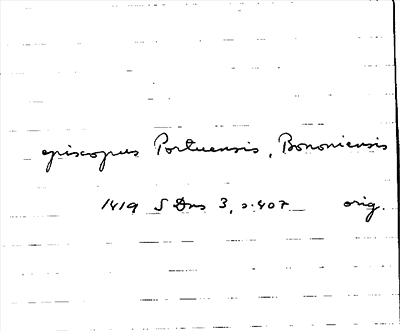 episcopus Portuensis, Bononiensis
1419 S Dns 3, s. 407 orig.